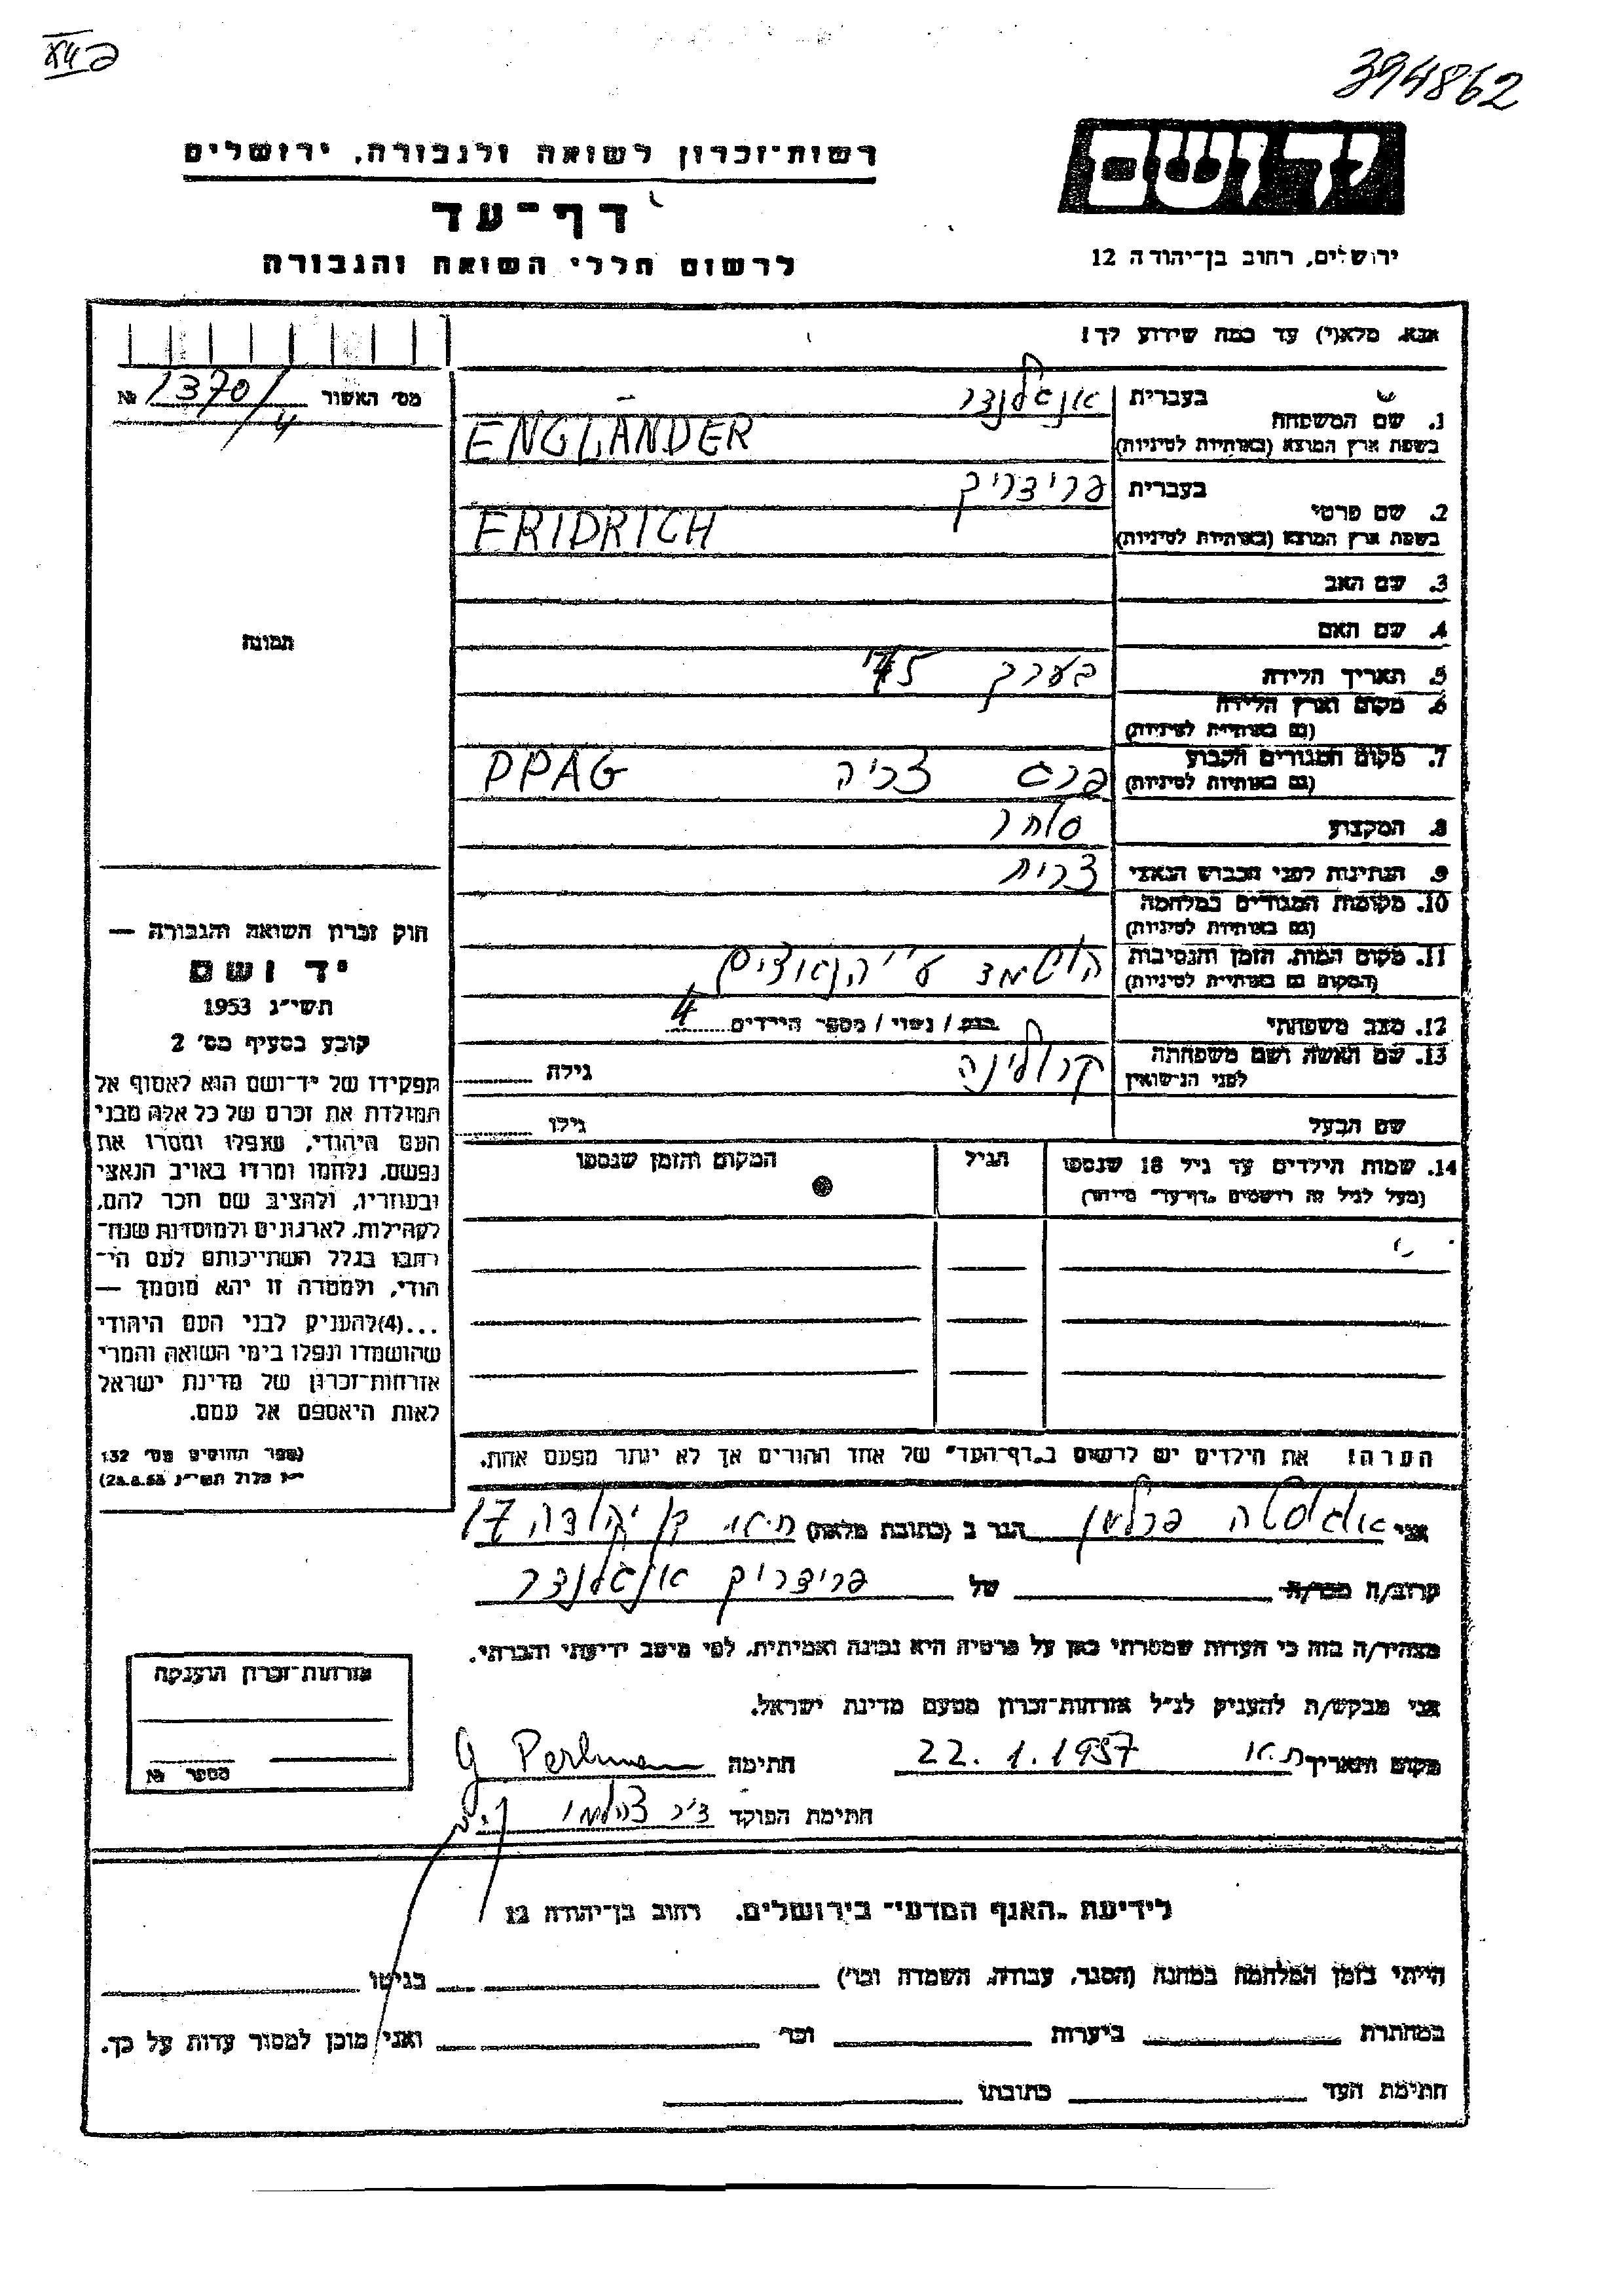 394862
רשות־זכרון לשואה ולגבורה, ירושלים
יד ושם
דף־עד
לרשום חללי השואה והגבורה
ירושלים, רחוב בן־יהודה 12
אנא, מלא(י) עד כמה שידוע לך!
מס׳ האשור 1370/4 №
בעברית אנגלנדר
1. שם המשפחה
בשפת ארץ המוצא (באותיות לטיניות) ENGLÄNDER
בעברית פרידריך
2. שם פרטי
בשפת ארץ המוצא (באותיות לטיניות) FRIDRICH
3. שם האב
4. שם האם
תמונה
5. תאריך הלידה בערך
6. מקום וארץ הלידה
(גם באותיות לטיניות)
7. מקום המגורים הקבוע פרג צכיה PPAG
(גם באותיות לטיניות)
8. המקצוע סוחר
9. הנתינות לפני הכבוש הנאצי צכית
10. מקומות המגורים במלחמה
(גם באותיות לטיניות)
11. מקום המות, הזמן והנסיבות הושמד ע״י הנאצים
(המקום גם באותיות לטיניות)
12. מצב משפחתי רווק / נשוי / מספר הילדים 4
13. שם האשה ושם משפחתה קרולינה גילה
לפני הנישואין
שם הבעל גילו
14. שמות הילדים עד גיל 18 שנספו הגיל המקום והזמן שנספו
(מעל לגיל זה רושמים „דף־עד״ מיוחד)
חוק זכרון השואה והגבורה —
יד ושם
תשי״ג 1953
קובע בסעיף מס׳ 2
תפקידו של יד־ושם הוא לאסוף אל
המולדת את זכרם של כל אלה מבני
העם היהודי, שנפלו ומסרו את
נפשם, נלחמו ומרדו באויב הנאצי
ובעוזריו, ולהציב שם וזכר להם,
לקהילות, לארגונים ולמוסדות שנח־
רבו בגלל השתייכותם לעם הי־
הודי, ולמטרה זו יהא מוסמך —
...(4)להעניק לבני העם היהודי
שהושמדו ונפלו בימי השואה והמרי
אזרחות־זכרון של מדינת ישראל
לאות היאספם אל עמם.
(ספר החוקים מס׳ 132
אלול תשי״ג 28.8.53)
הערה! את הילדים יש לרשום ב„דף־העד״ של אחד ההורים אך לא יותר מפעם אחת.
אני אוגוסטה פרלמן הגר ב (כתובת מלאה) ת״א בן יהודה 17
קרוב/ה מכר/ה של פרידריך אנגלנדר
מצהיר/ה בזה כי העדות שמסרתי כאן על פרטיה היא נכונה ואמיתית, לפי מיטב ידיעתי והכרתי.
אני מבקש/ת להעניק לנ״ל אזרחות־זכרון מטעם מדינת ישראל.
מקום ותאריך ת״א 22.1.1957 חתימה G Perlman
חתימת הפוקד
אזרחות־זכרון הוענקה
מספר №
לידיעת „האגף המדעי״ בירושלים, רחוב בן־יהודה 12
הייתי בזמן המלחמה במחנה (הסגר, עבודה, השמדה וכו׳) בגיטו
במחתרת ביערות וכו׳ ואני מוכן למסור עדות על כך.
חתימת העד כתובתו